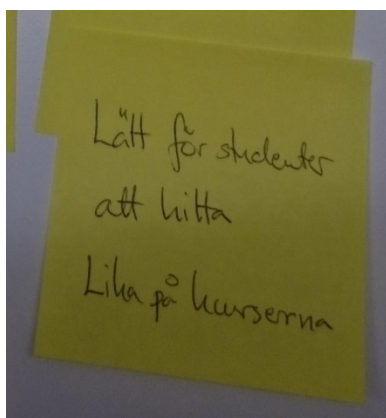 Lätt för studenter
att hitta
Lika på kurserna